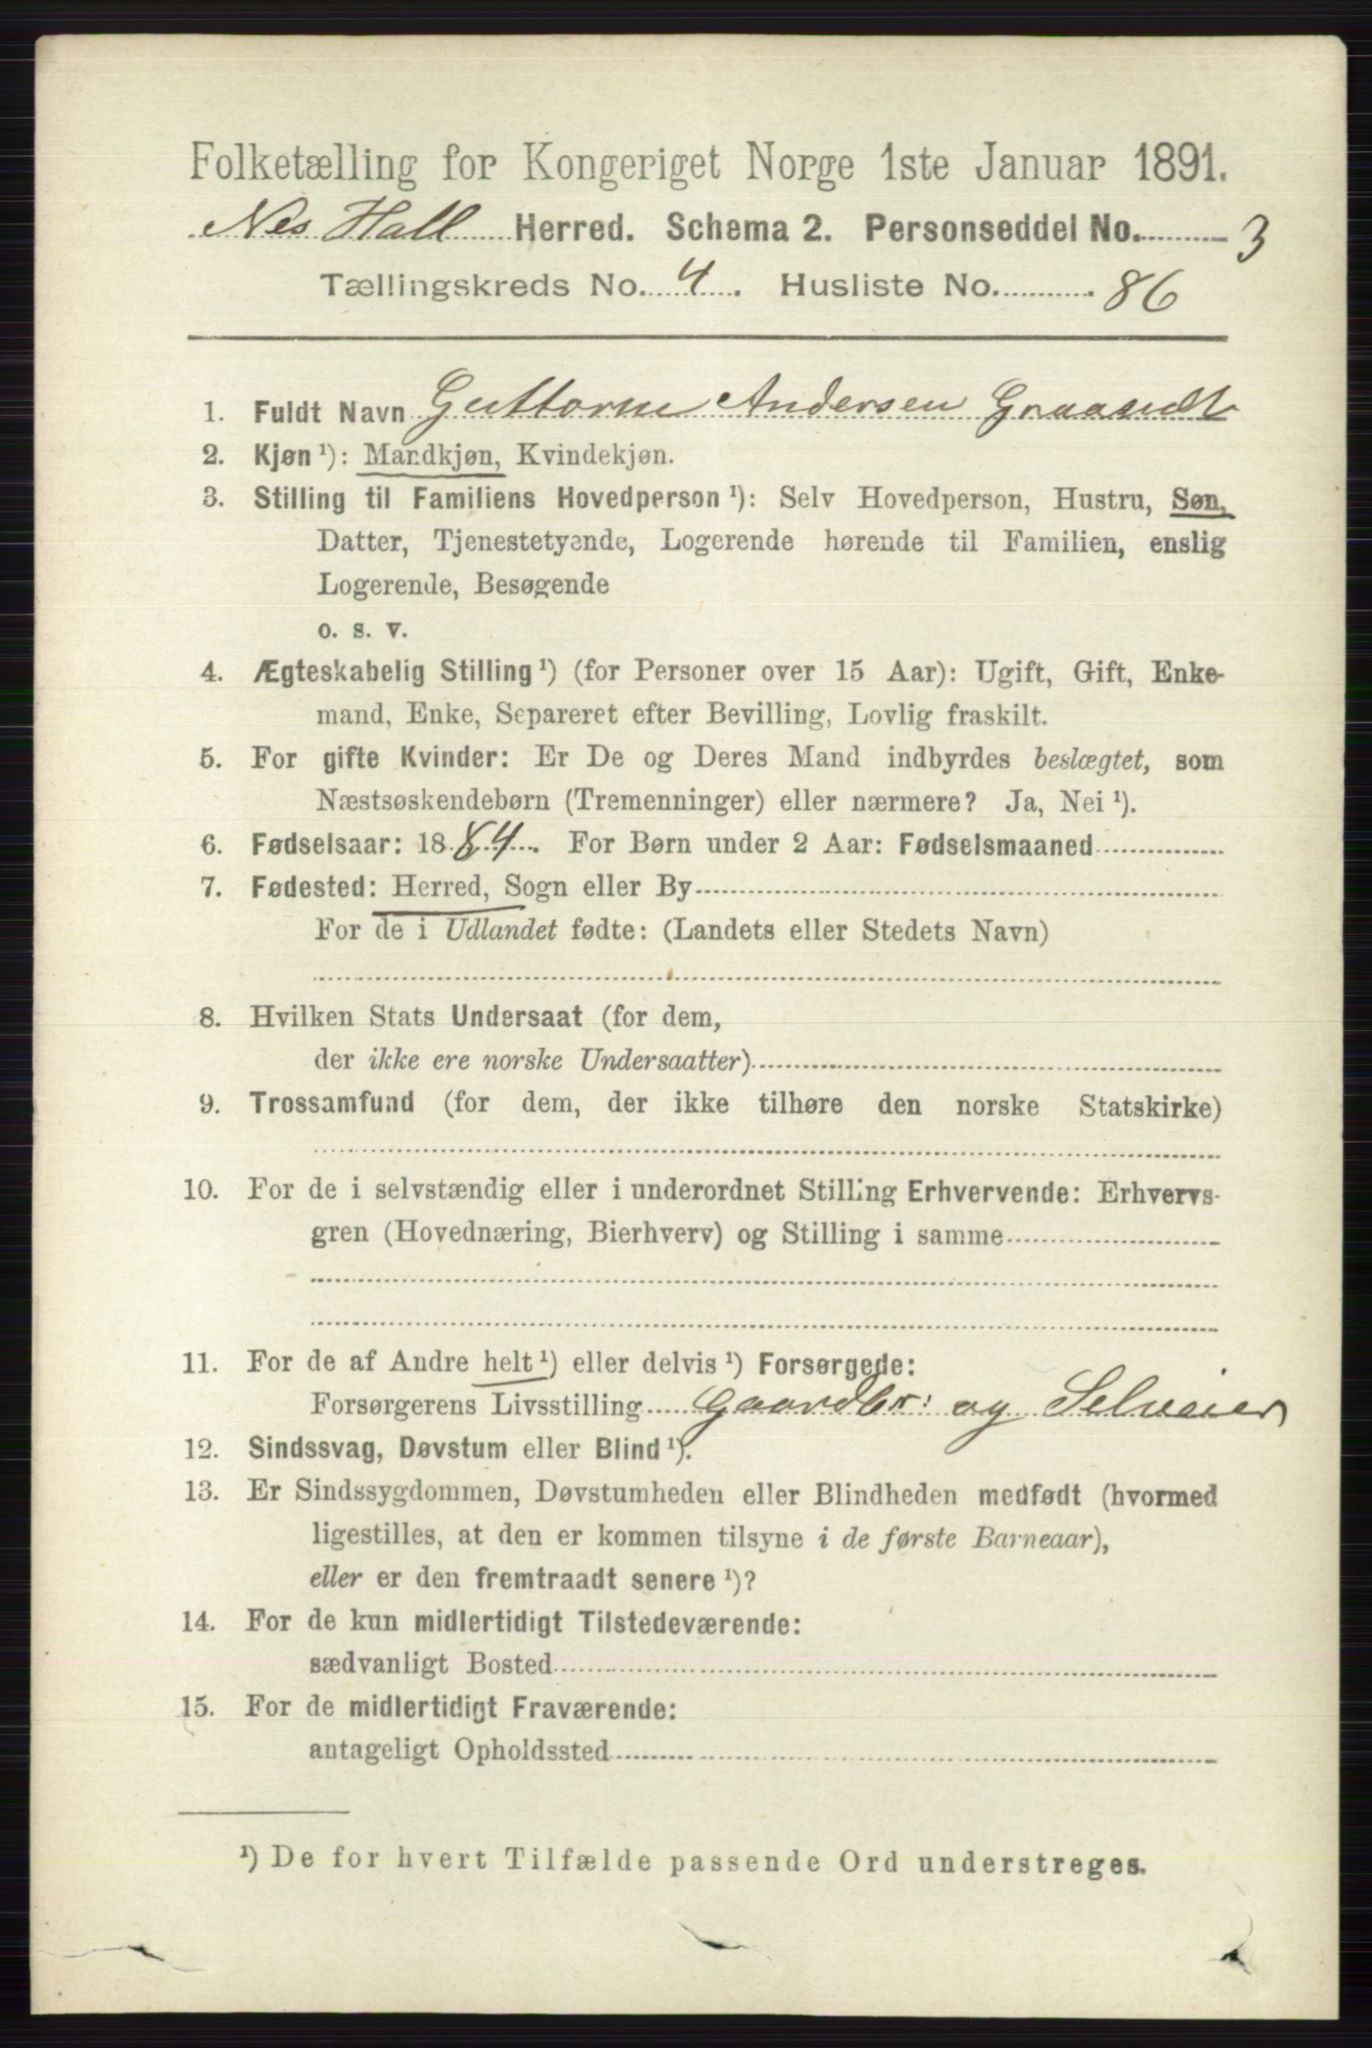 Folketælling for Kongeriget Norge 1ste Januar 1891.
Nes Hall Herred. Schema 2. Personseddel No. 3
Tællingskreds No. 4. Husliste No. 86
1. Fuldt Navn Guttorm Andersen
2. Kjøn ¹): Mandkjøn, Kvindekjøn.
3. Stilling til Familiens Hovedperson ¹): Selv Hovedperson, Hustru, Søn,
Datter, Tjenestetyende, Logerende hørende til Familien, enslig
Logerende, Besøgende
o. s. v.
4. Ægteskabelig Stilling ¹) (for Personer over 15 Aar): Ugift, Gift, Enke-
mand, Enke, Separeret efter Bevilling, Lovlig fraskilt.
5. For gifte Kvinder: Er De og Deres Mand indbyrdes beslægtet, som
Næstsøskendebørn (Tremenninger) eller nærmere? Ja, Nei ¹).
6. Fødselsaar: 1884. For Børn under 2 Aar: Fødselsmaaned
7. Fødested: Herred, Sogn eller By
For de i Udlandet fødte: (Landets eller Stedets Navn)
8. Hvilken Stats Undersaat (for dem,
der ikke ere norske Undersaatter)
9. Trossamfund (for dem, der ikke tilhøre den norske Statskirke)
10. For de i selvstændig eller i underordnet Stilling Erhvervende: Erhvervs-
gren (Hovednæring, Bierhverv) og Stilling i samme
11. For de af Andre helt ¹) eller delvis ¹) Forsørgede:
Forsørgerens Livsstilling Gaardbr: og Selveier
12. Sindssvag, Døvstum eller Blind ¹).
13. Er Sindssygdommen, Døvstumheden eller Blindheden medfødt (hvormed
ligestilles, at den er kommen tilsyne i de første Barneaar),
eller er den fremtraadt senere ¹)?
14. For de kun midlertidigt Tilstedeværende:
sædvanligt Bosted
15. For de midlertidigt Fraværende:
antageligt Opholdssted
¹) De for hvert Tilfælde passende Ord understreges.